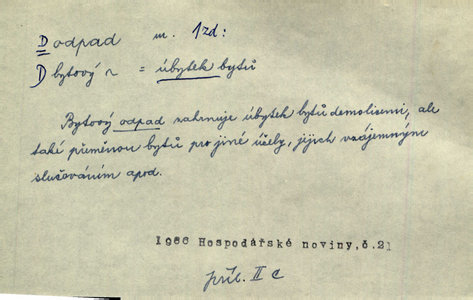 D odpad m. 1zd:
D bytový ~ = úbytek bytů
Bytový odpad zahrnuje úbytek bytů demolicemi, ale
také přeměnou bytů pro jiné účely, jejich vzájemným
slučováním apod.
1966 Hospodářské noviny,č.21
příl. II c